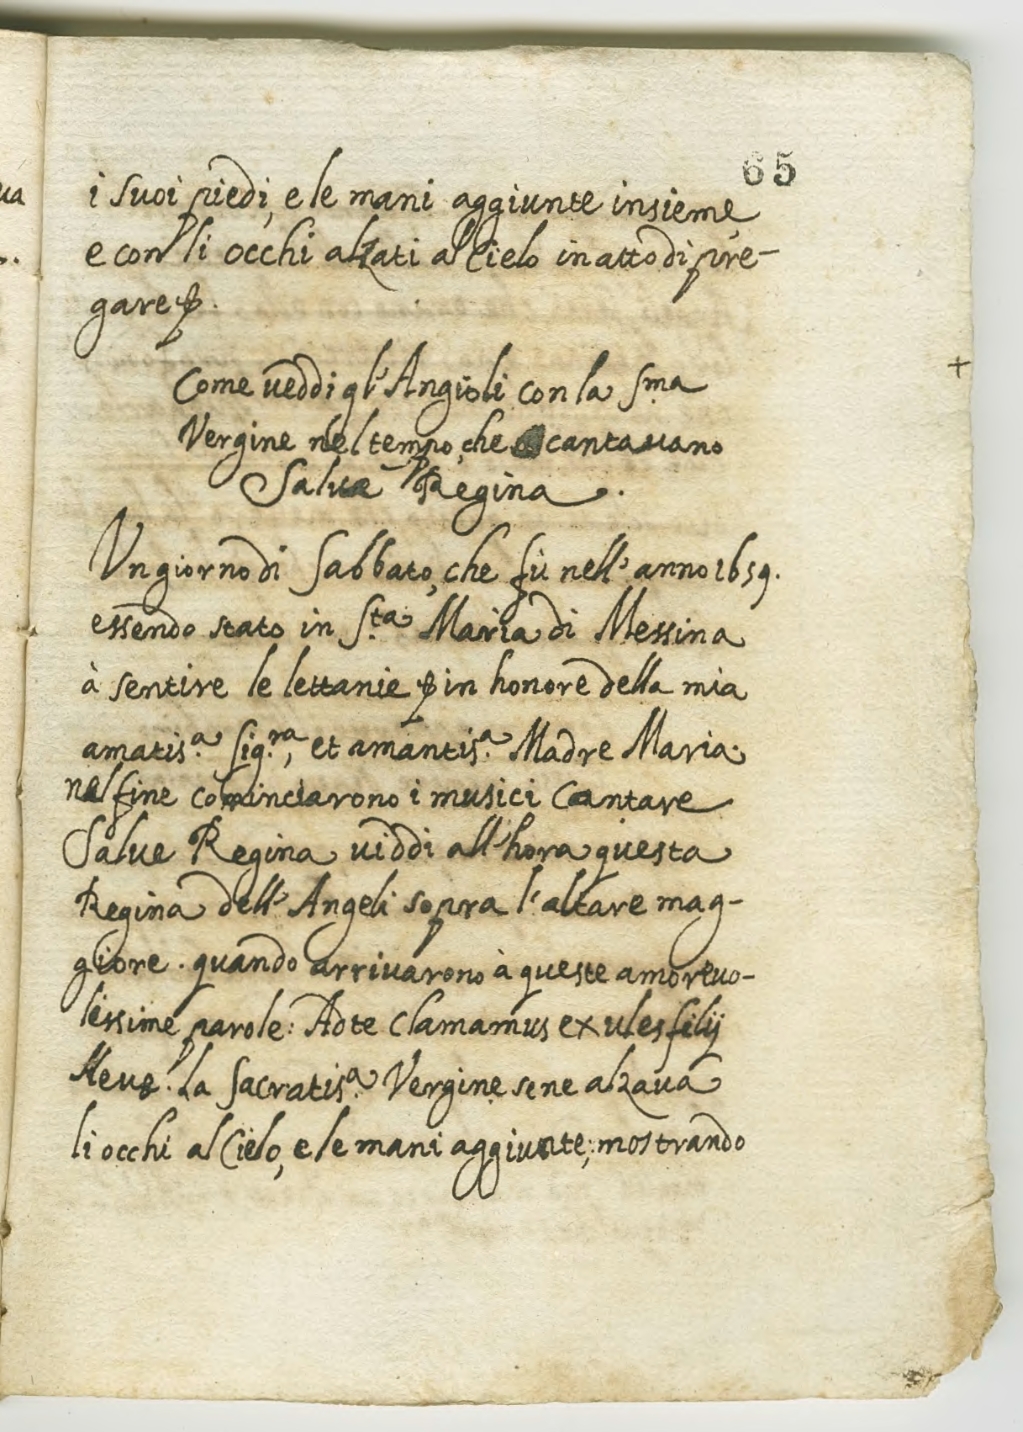 65
i suoi piedi, e le mani aggiunte insieme,
e con li occhi alzati al Cielo in atto di pre-
gare &.
Come veddi gl' Angioli con la S.ma
Vergine nel tempo, che cantauano
Salue Regina.
Un giorno di Sabbato, che fù nell' anno 1659.
essendo stato in S.ta Maria di Messina
à sentire le lettanie & in honore della mia
amatis.a Sig.ra, et amantis.a Madre Maria.
nel fine cominciarono i musici Cantare
Salue Regina uiddi all'hora questa
Regina dell' Angeli sopra l'altare mag-
giore. quando arriuarono à queste amoreuo-
lissime parole: Ad te Clamamus exules filij
Heuæ. La Sacratis.a Vergine se ne alzaua
li occhi al Cielo, e le mani aggiunte; mostrando
ua
+